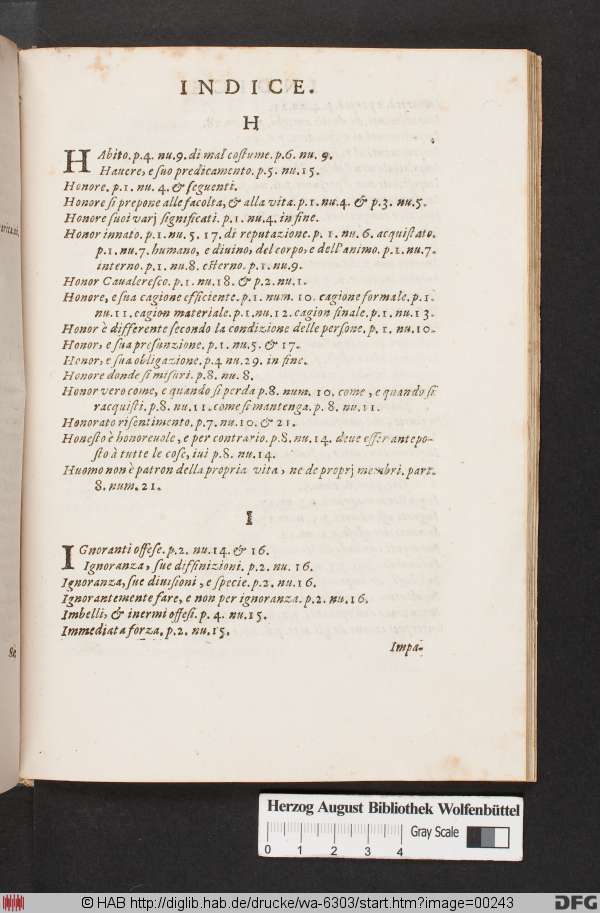 INDICE.
H
HAbito.p.4. nu.9. di mal costume.p.6. nu. 9.
Hauere, e suo predicamento.p.5. nu.15.
Honore.p.1. nu. 4. & seguenti.
Honore si prepone alle facolta, & alla vita.p.1.nu.4. & p.3. nu.5.
Honore suoi varj significati. p.1. nu.4. in fine.
Honor innato.p.1.nu.5. 17. di reputazione.p. 1. nu.6. acquistato.
p.1.nu.7. humano, e diuino, del corpo, e dell'animo.p.1.nu.7.
interno.p.1. nu.8. esterno.p.1.nu.9.
Honor Caualeresco.p.1.nu.18. & p.2.nu.1.
Honore, e sua cagione efficiente.p.1. num. 10. cagione formale.p.1.
nu.11. cagion materiale.p.1.nu.12. cagion finale.p.1. nu.13.
Honor è differente secondo la condizione delle persone. p.1. nu.10.
Honor, e sua presunzione.p.1. nu.5. & 17.
Honor, e sua obligazione.p.4 nu.29. in fine.
Honore donde si misuri. p.8. nu.8.
Honor vero come, e quando si perda p.8. num. 10. come, e quando si
racquisti. p.8. nu.11. come si mantenga. p. 8. nu.11.
Honorato risentimento.p.7.nu.10. & 21.
Honesto è honoreuole, e per contrario.p.8.nu.14. deue esser antepo-
sto à tutte le cose, iui p.8. nu.14.
Huomo non è patron della propria vita, ne de proprj membri. part.
8. num. 21.
I
IGnoranti offese.p.2. nu.14. & 16.
Ignoranza, sue diffinizioni. p.2. nu. 16.
Ignoranza, sue diuisioni, e specie.p.2.nu.16.
Ignorantemente fare, e non per ignoranza. p.2. nu.16.
Imbelli, & inermi offesi. p. 4. nu.15.
Immediata forza. p.2. nu.15.
Impa-
Herzog August Bibliothek Wolfenbüttel
Gray Scale
0 1 2 3 4
© HAB http://diglib.hab.de/drucke/wa-6303/start.htm?image=00243
DFG